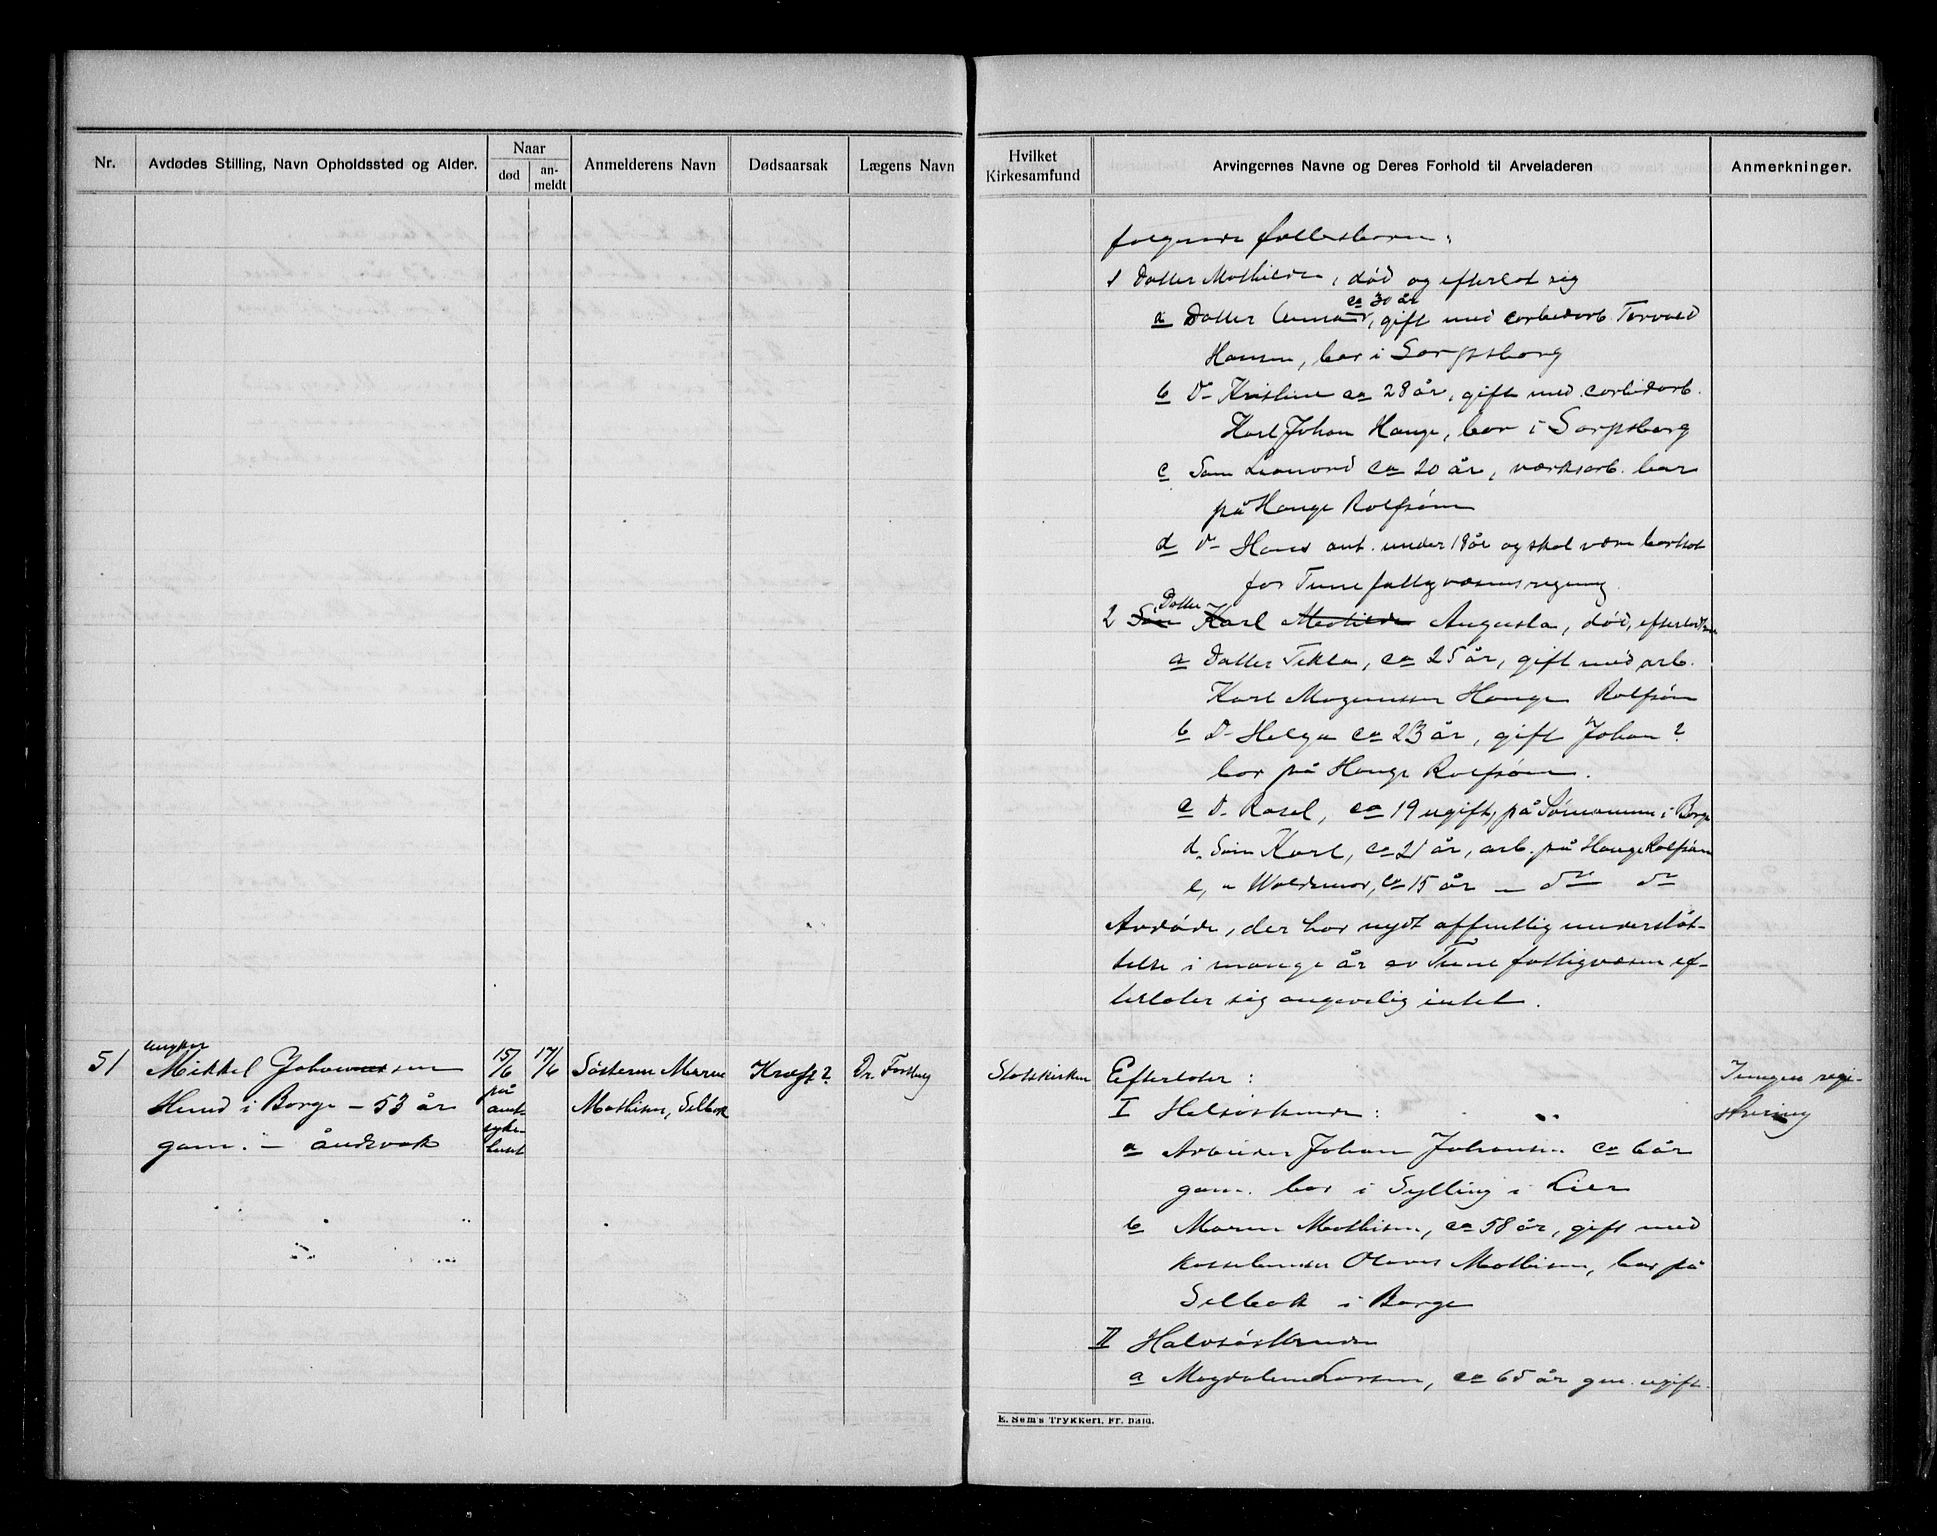 Nr.
Avdødes Stilling, Navn Opholdssted og Alder.
Naar
død
an-
meldt
Anmelderens Navn
Dødsaarsak
Lægens Navn
Hvilket
Kirkesamfund
Arvingernes Navne og Deres Forhold til Arveladeren
Anmerkninger.
følgende fællesbarn:
1 Datter Mathilde, død og efterlot sig
ca 30 år
a Datter Anna, gift med carbidarb. Torvald
Hansen, bor i Sarpsborg
b D- Kristine ca 28 år, gift med carbidarb.
Karl Johan Hauge, bor i Sarpsborg
c Søn Leonard ca 20 år, værksarb. bor
på Hauge Rolfsøen
d D- Hans ant. under 18 år og skal være bortsat
for Tune fattigvæsens regning.
Datter
2 Søn Karl Mathilde Augusta, død, efterlot
a Datter Tekla, ca 25 år, gift med arb.
Karl Magnussen Hauge Rolfsøen
b D- Helga ca 23 år, gift Johan ?
bor på Hauge Rolfsøen.
c D- Rosel, ca 19 ugift, på i Borge
d. Søn Karl, ca 21 år, arb. på Hauge Rolfsøen
e, " Waldemar, ca 15 år — do do
Avdøde, der har nydt offentlig understøt-
telse i mange år av Tune fattigvæsen ef-
terlater sig angivelig intet.
51
ungkar
Mikkel Johannessen
Hund i Borge – 53 år
gam. – åndsvak
15/6
på
amt-
syke-
huset
17/6
Søsteren Maren
Mathisen, Selbak
Kræft?
Dr. Forsberg
Statskirken
Efterlater:
I Helsøskende:
a Arbeider Johan Johansen ca 6 år
gam. bor i Sylling i Lier
b Maren Mathisen, ca 58 år, gift med
Olaves Mathisen, bor på
Selbak i Borge
II Halvsøskende
a Magdalene Larsen, ca 65 år gml. ugift.
Ingen regi-
strering
E. Sem's Trykkeri, Fr. hald.